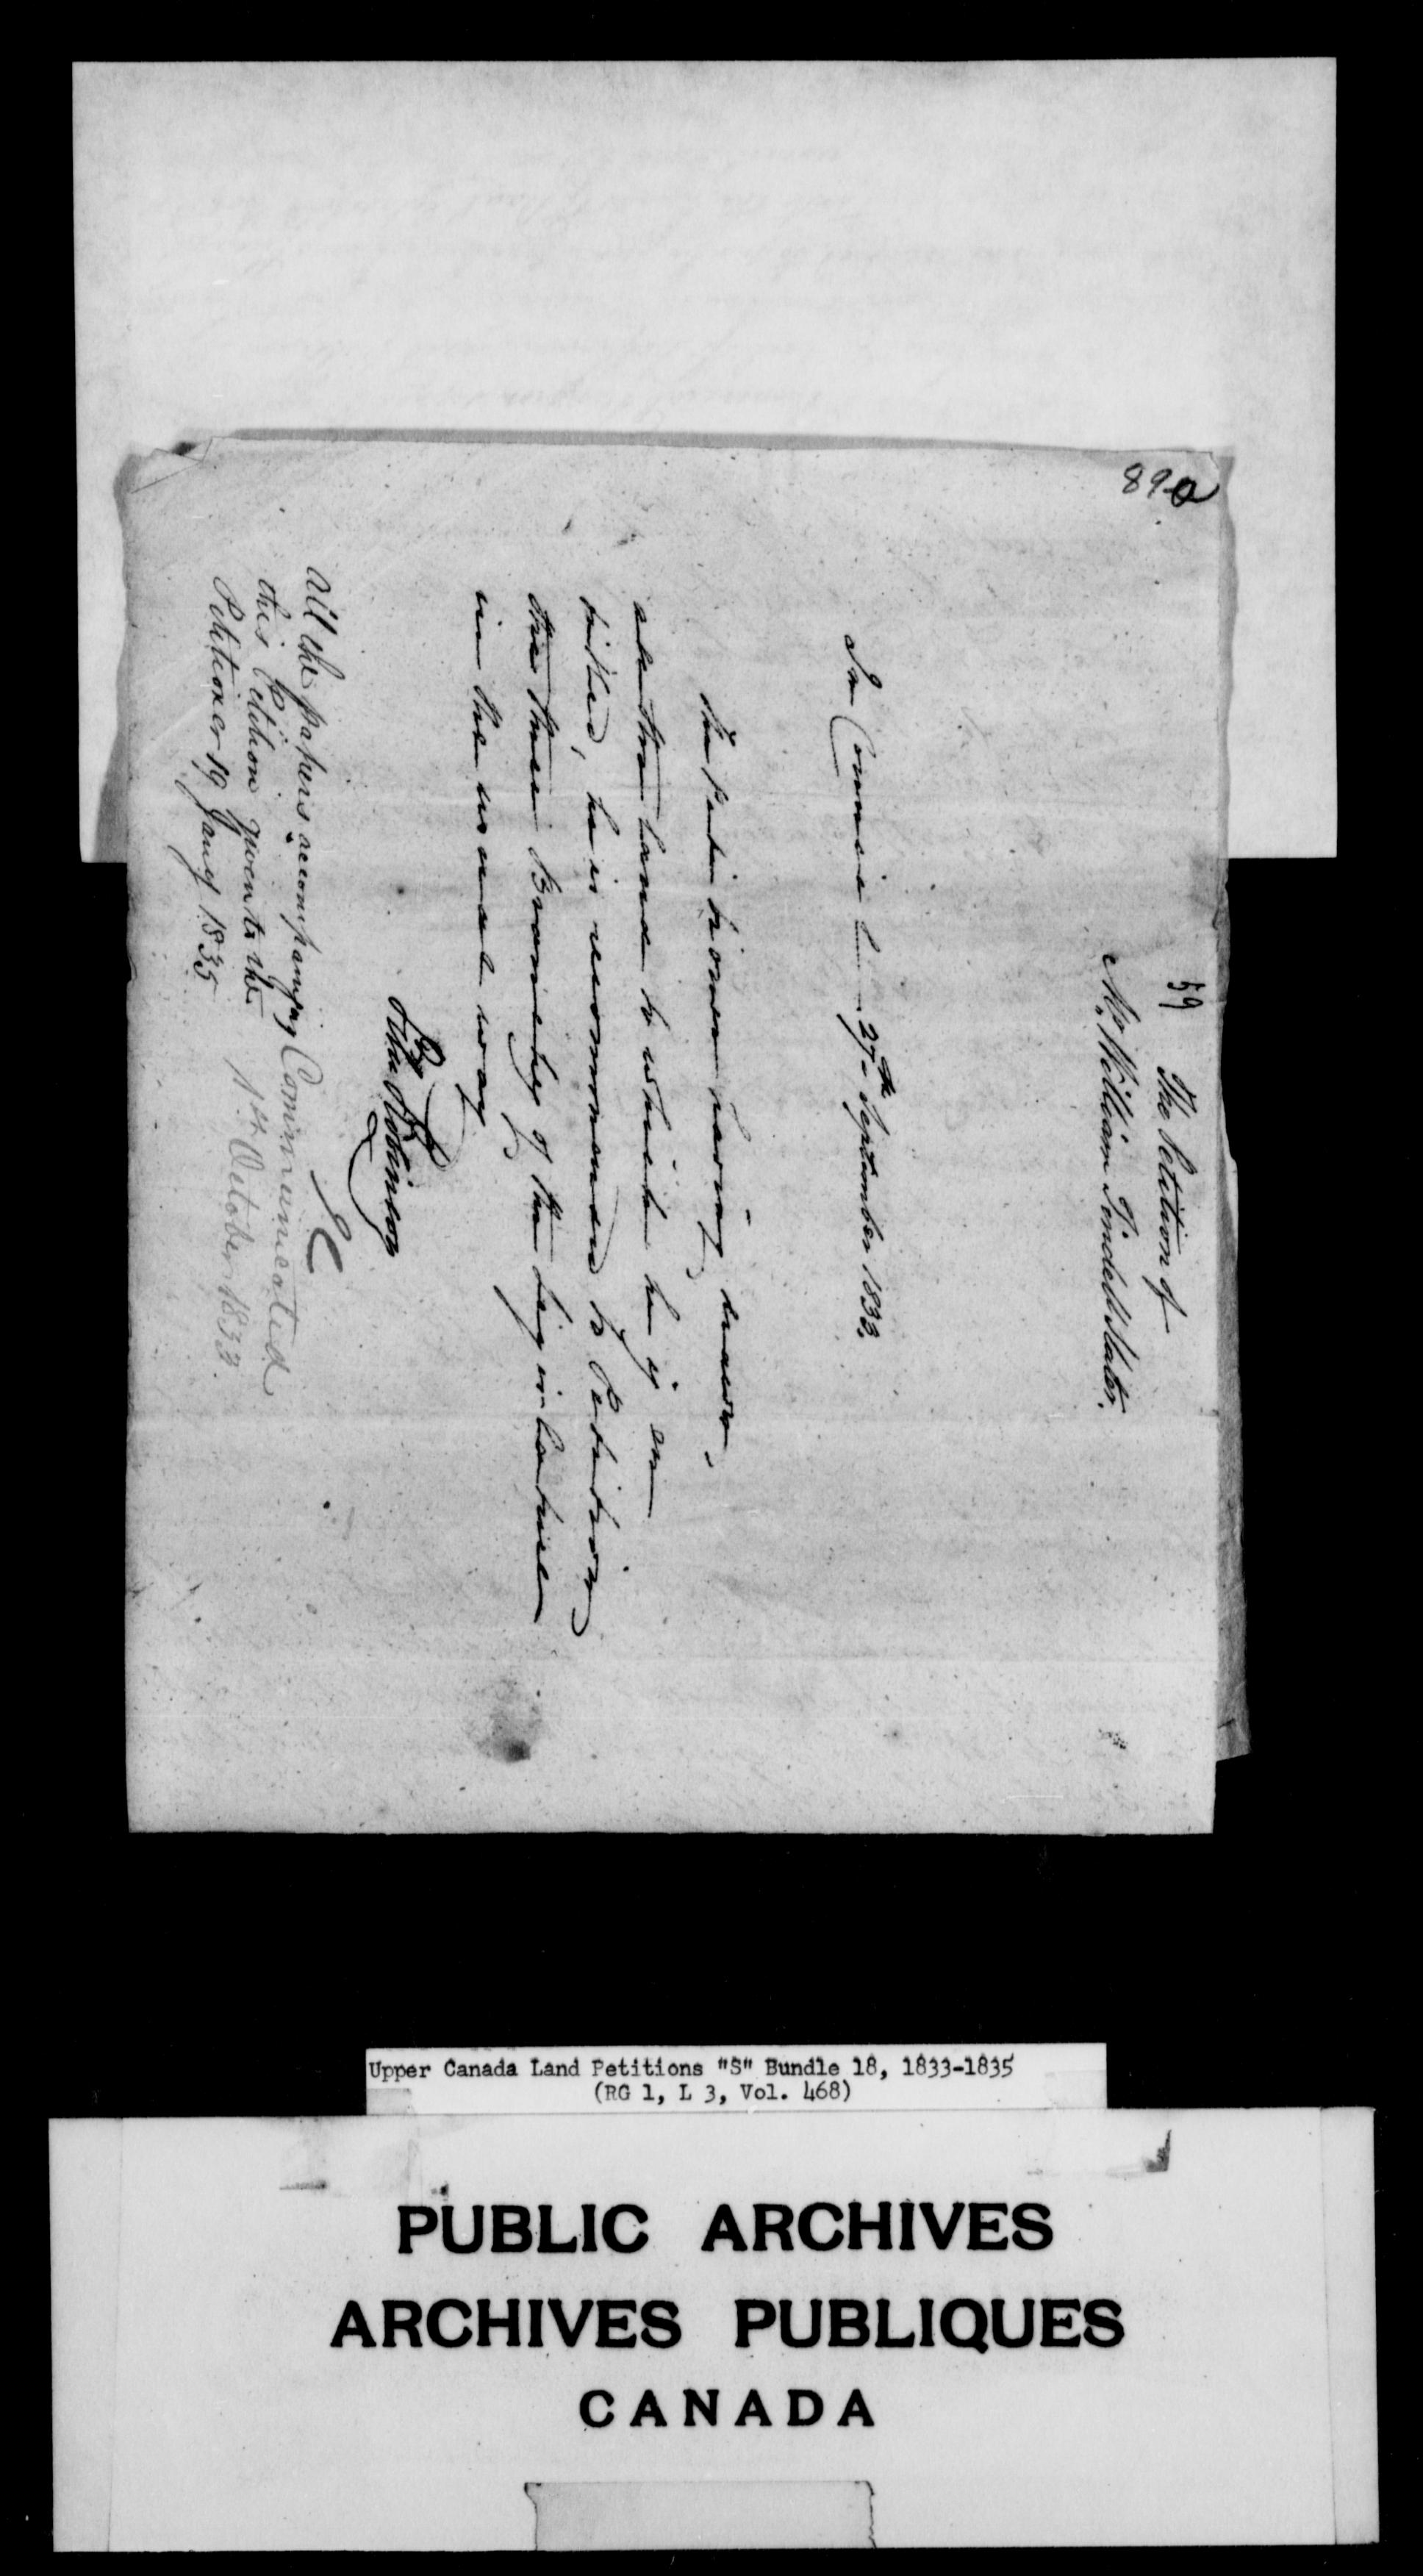 89a
59
The Petition of
Mr. William Tindell Slater.
In Council 27th September 1833.
The Petitioner having drawn
all the land to which he is en
titled, he is recommended to Petition
the
in the usual way
PR
Peter Robinson
EC
All the papers accompanying
this Petition given to the
Petitioner 19 Jany 1835
Communicated
1st October 1833.
Upper Canada Land Petitions "S" Bundle 18, 1833-1835
(RG 1, L 3, Vol. 468)
PUBLIC ARCHIVES
ARCHIVES PUBLIQUES
CANADA